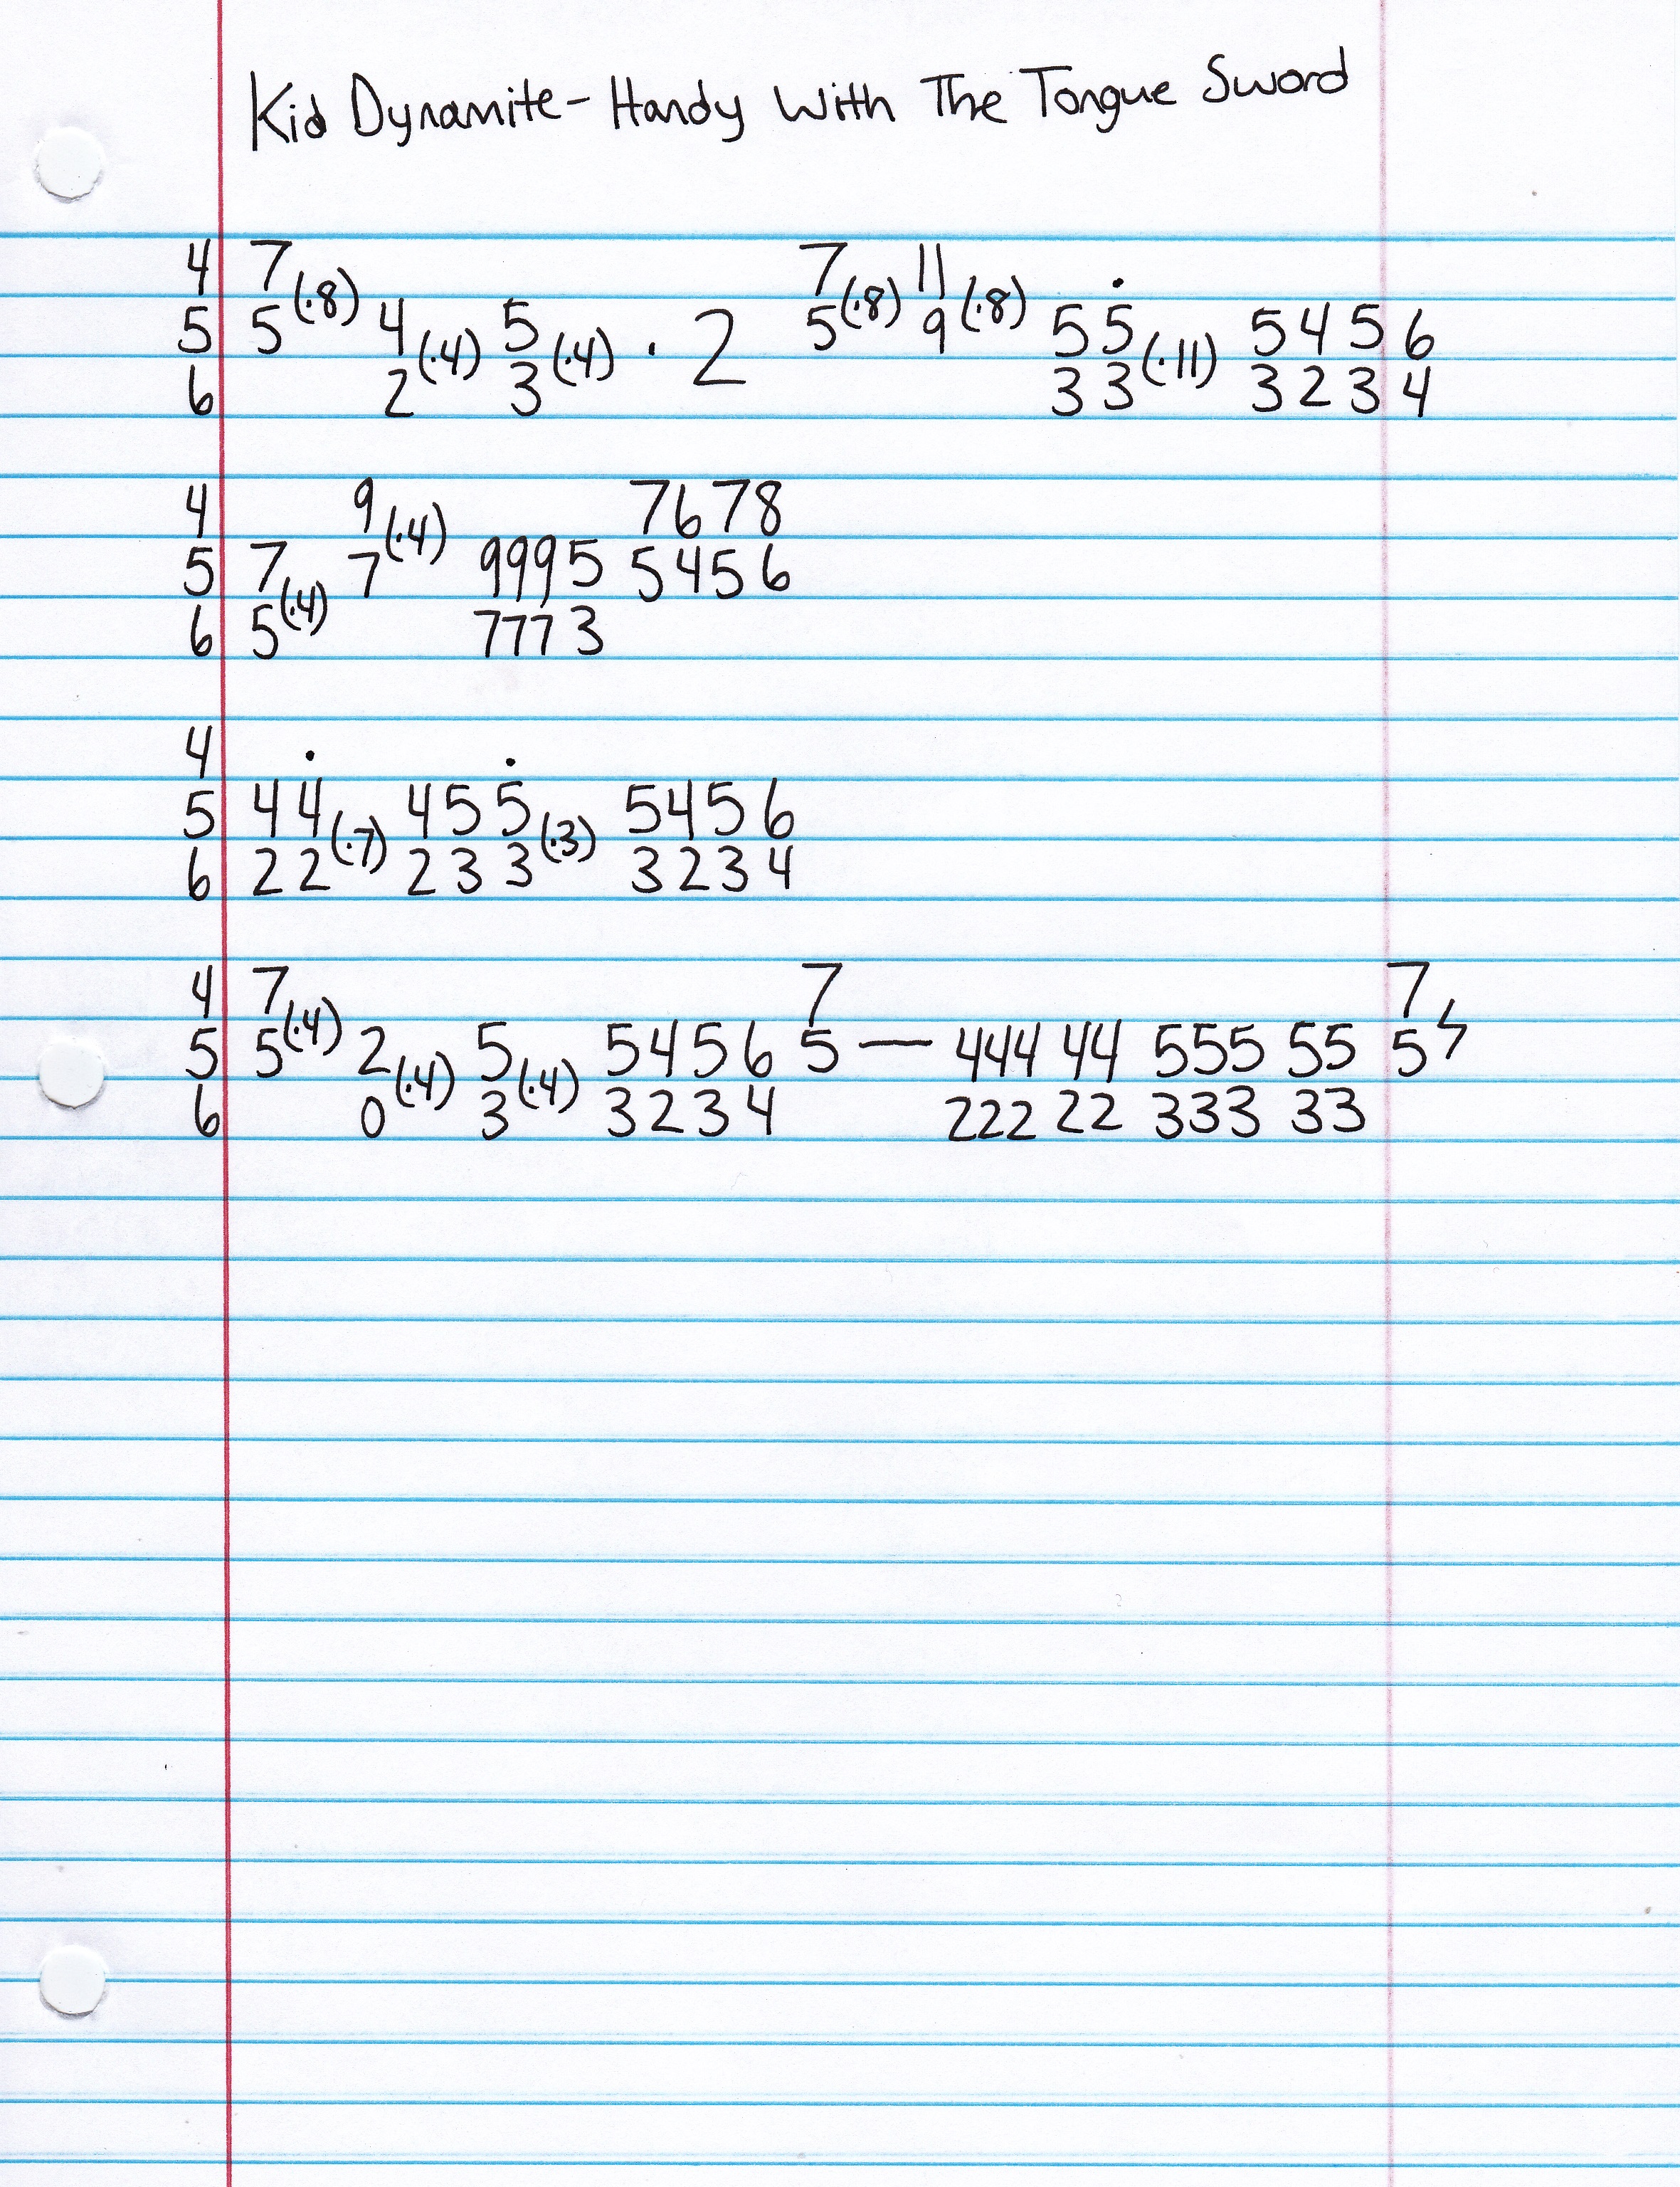 Kid Dynamite - Handy With The Tongue Sword
4 7 7 11
5 5 (·8) 4 (·4) 5 (·4) · 2 5 (·8) 9 (·8) 5 5̇ (·11) 5 4 5 6
6 2 3 3 3 3 2 3 4
4 9 7 6 7 8
5 7 (·4) 7 (·4) 9 9 9 5 5 4 5 6
6 5 7 7 7 3
4
5 4 4̇ (·7) 4 5 5̇ (·3) 5 4 5 6
6 2 2 2 3 3 3 2 3 4
4 7 7 7
5 5 (·4) 2 (·4) 5 (·4) 5 4 5 6 5 — 444 44 555 55 5 ϟ
6 0 3 3 2 3 4 222 22 333 33